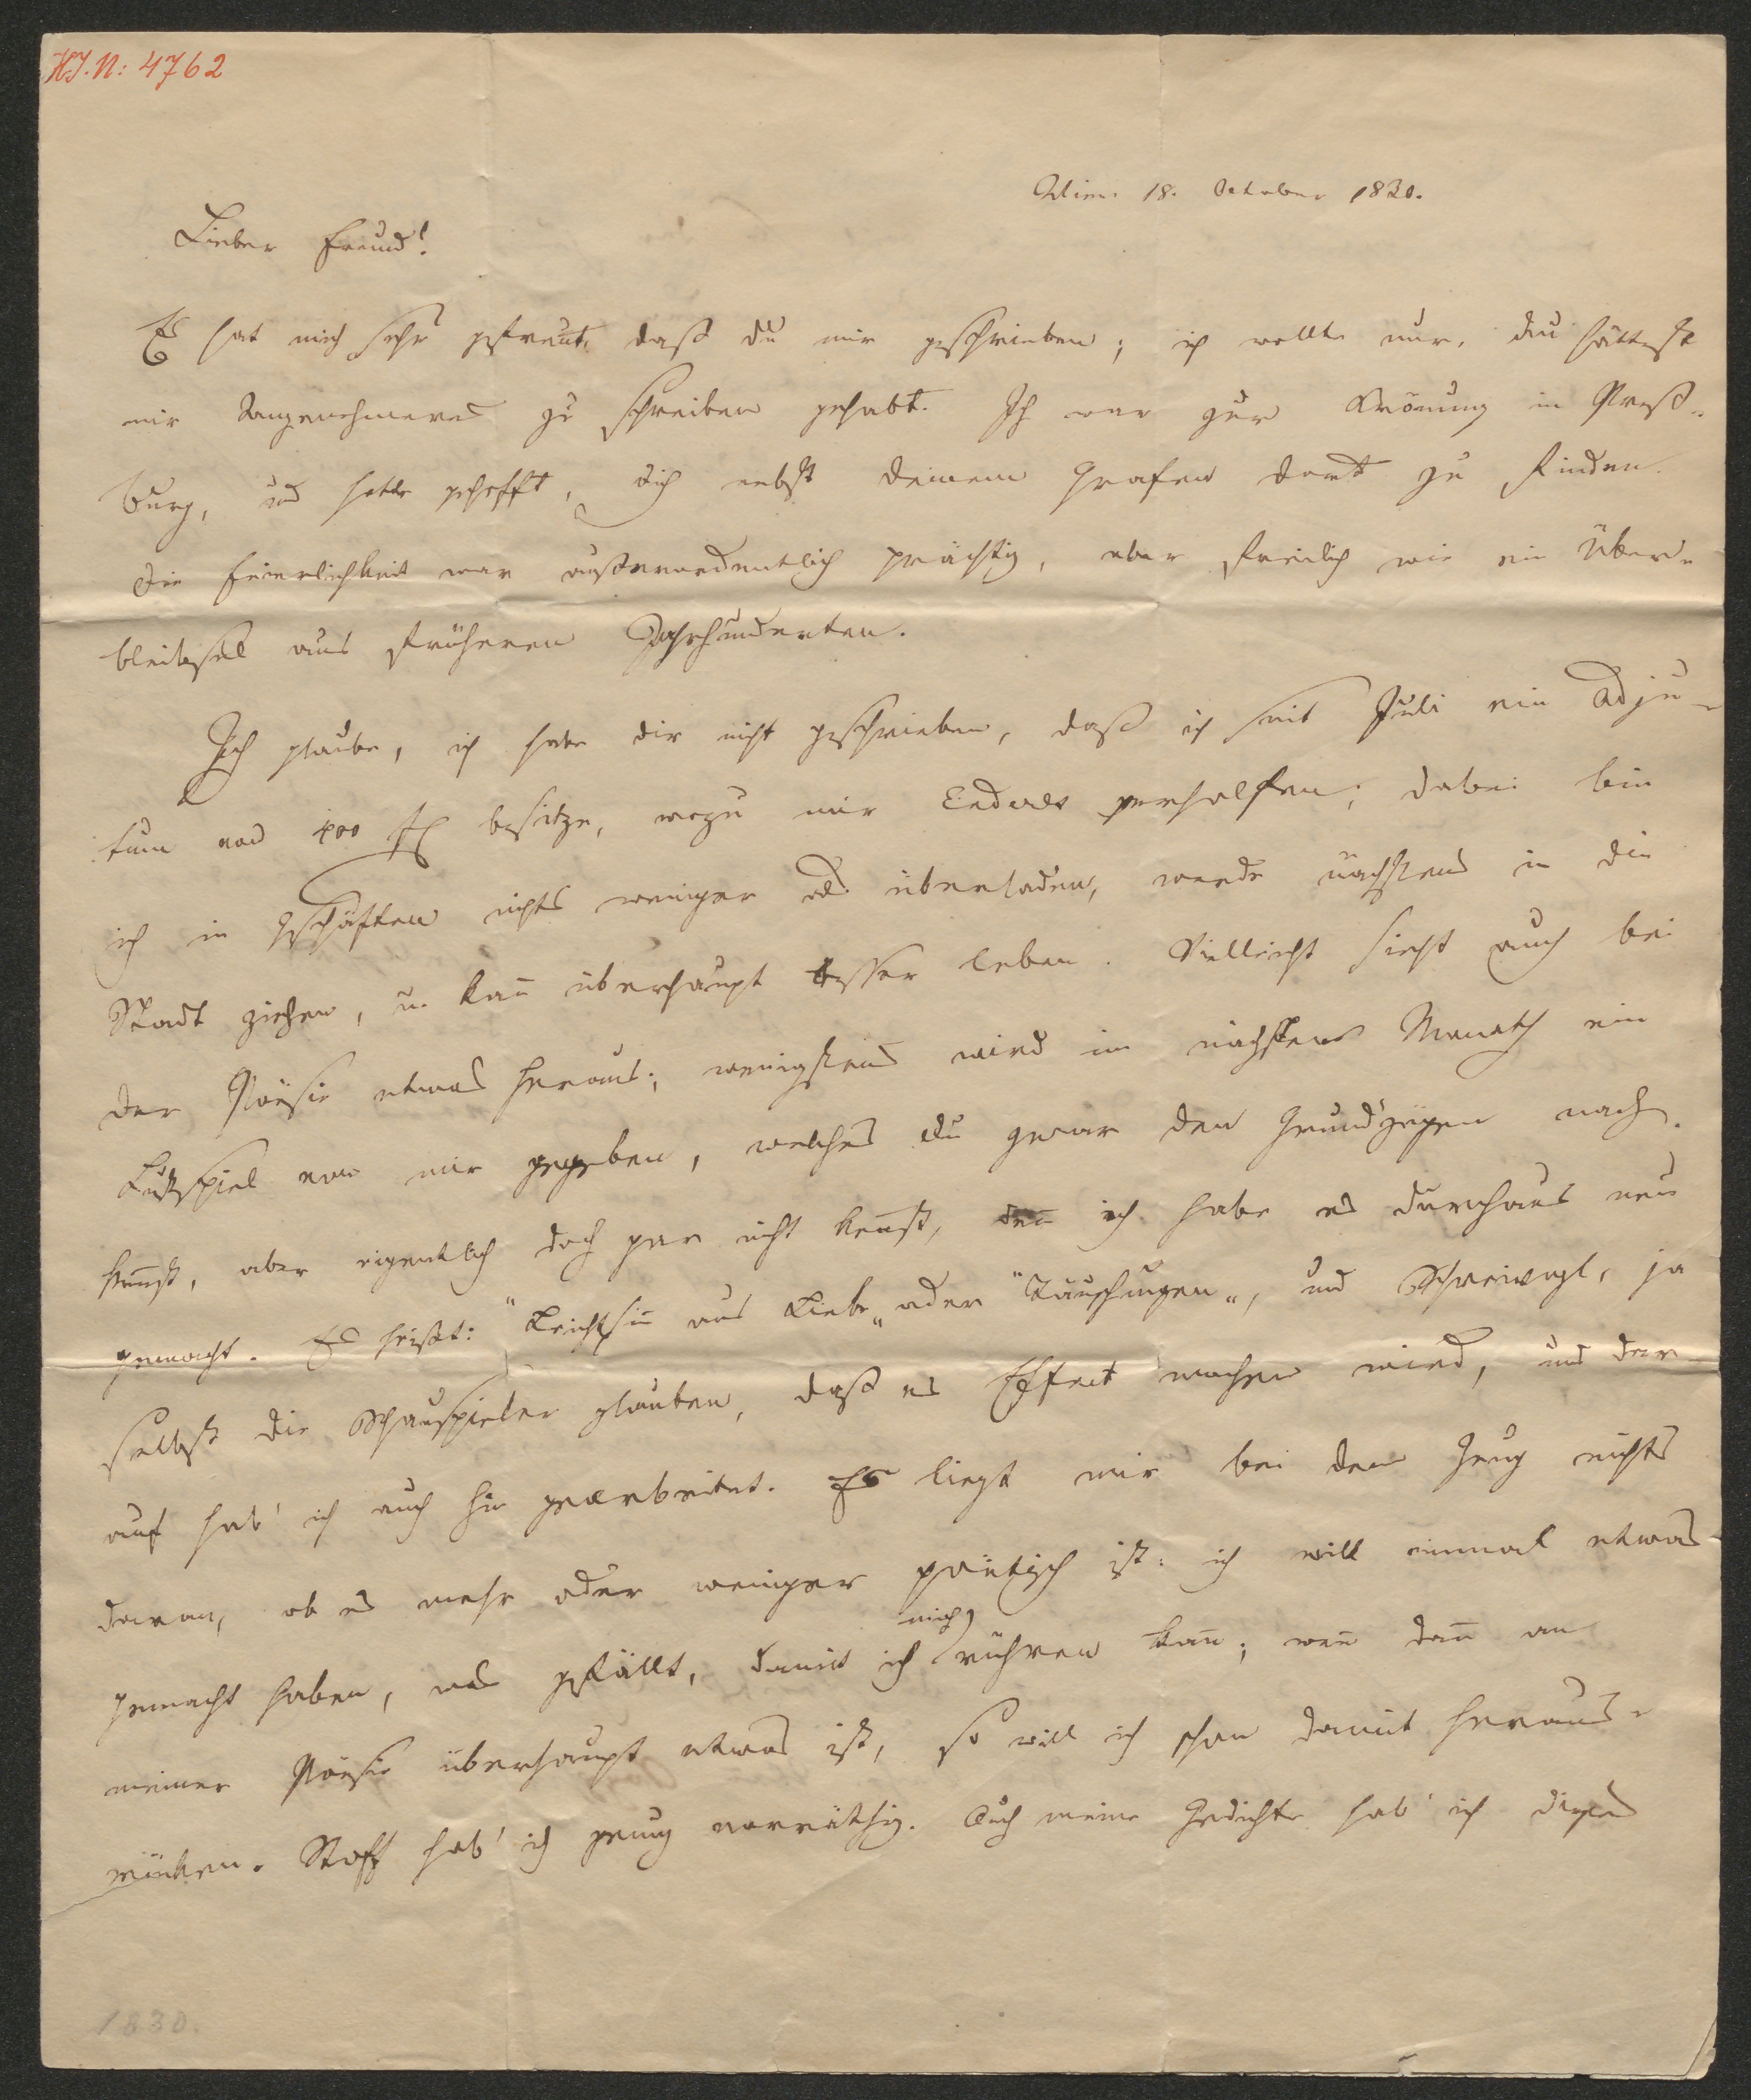 H.I.N: 4762
Wien 18. October 1830.
Lieber Freund!
Es hat mich sehr gefreut, daß du mir geschrieben; ich wollte nur, du hättest
mir Angenehmeres zu schreiben gehabt. Ich war zur Krönung in Preß-
burg, und hatte gehofft, dich nebst deinem Grafen dort zu finden.
Die Feierlichkeit war außerordentlich prächtig, aber freilich wie ein Über-
bleibsel aus früheren Jahrhunderten.
Ich glaube, ich habe dir nicht geschrieben, daß ich seit Juli ein Adju-
tum von 400 fl besitze, wozu mir Enderes verholfen; dabei bin
ich in Geschäften nichts weniger als überladen, werde nächstens in die
Stadt ziehen, u. kan̄ überhaupt besser leben. Vielleicht sieht auch bei
der Poësie etwas heraus; wenigstens wird im nächsten Monath ein
Lustspiel von mir gegeben, welches du zwar den Grundzügen nach
ken̄st, aber eigentlich doch gar nicht ken̄st, den̄ ich habe es durchaus neu
gemacht. Es heißt: "Leichtsin̄ aus Liebe" oder "Täuschungen", und Schreivogl, ja
selbst die Schauspieler glauben, daß es Effect machen wird, und dar-
auf hab' ich auch hin gearbeitet. Es liegt mir bei dem Zeug nichts
daran, ob es mehr oder weniger poëtisch ist: ich will einmal etwas
gemacht haben, was gefällt, damit ich mich rühren kan̄; wen̄ dan̄ an
meiner Poësie überhaupt etwas ist, so will ich schon damit heraus-
rücken. Stoff hab' ich genug vorräthig. Auch meine Gedichte hab' ich dieses
1830.